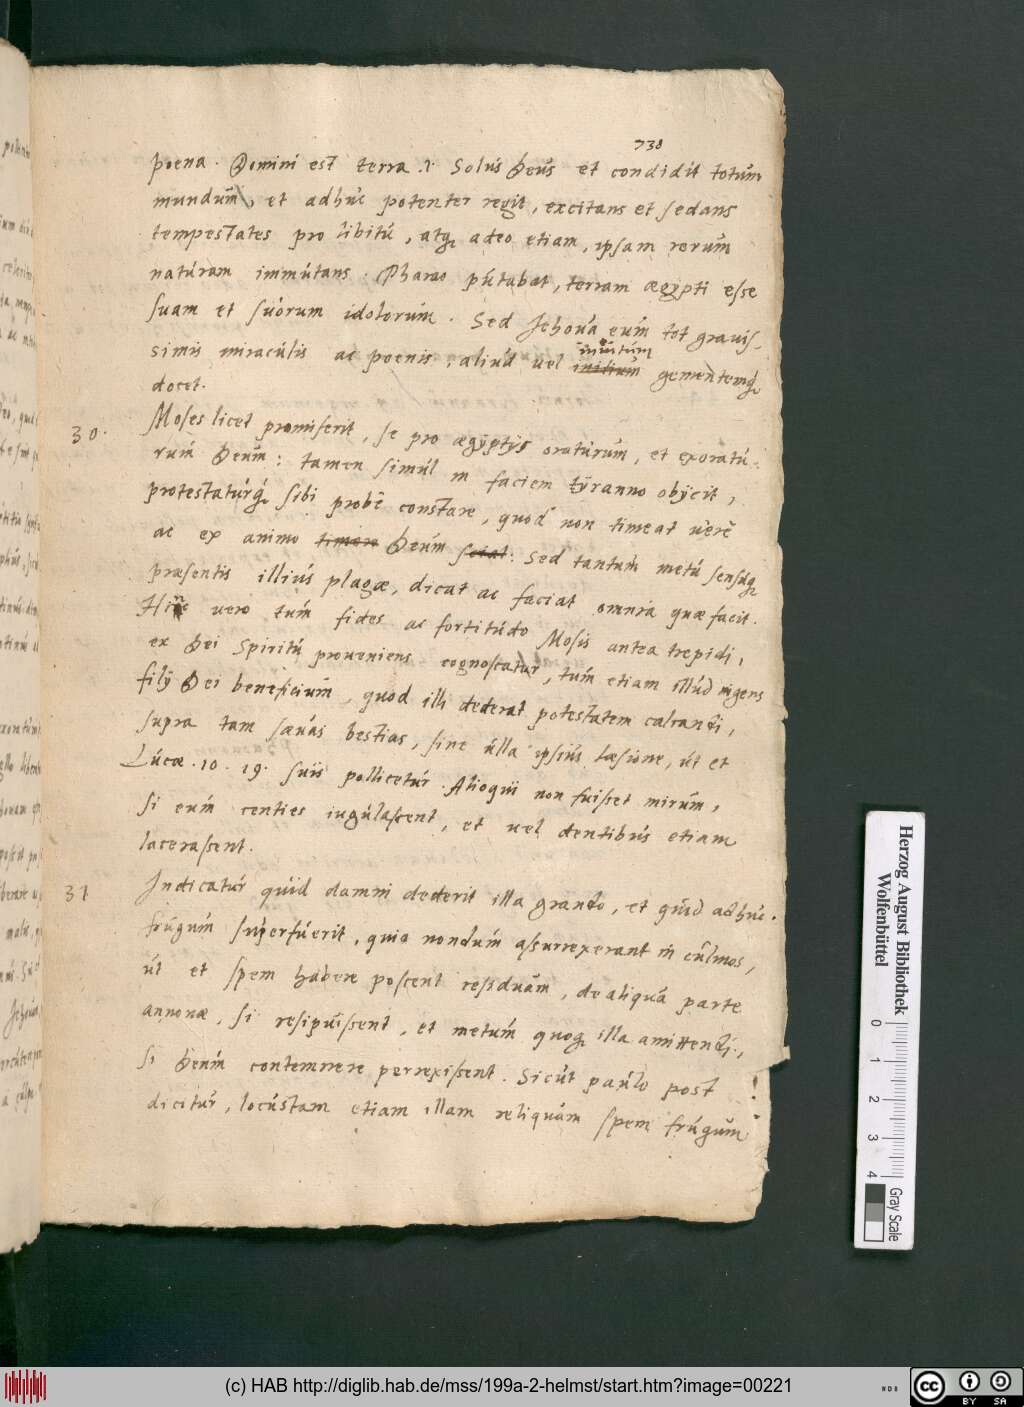 738
poena. Domini est terra .i. Solus Deus et condidit totum
mundum, et adhuc potenter regit, excitans et sedans
tempestates pro libitu, atq; adeo etiam, ipsam rerum
naturam immutans. Pharao putabat, terram ægypti esse
suam et suorum idolorum. Sed Jehova eum tot gravis-
simis miraculis ac poenis, aliud vel initium inuitum gementemq;
docet.
30. Moses licet promiserit, se pro ægyptijs oraturum, et exoratu-
rum Deum: tamen simul in faciem tÿranno obijcit,
protestaturq; sibi probè constare, quod non timeat verè
ac ex animo timere Deum sciat: Sed tantum metu sensuq;
præsentis illius plagæ, dicat ac faciat omnia quæ facit.
Hinc vero tum fides ac fortitudo Mosis antea trepidi,
ex Dei Spiritu proueniens cognoscatur, tum etiam illud ingens
filij Dei beneficium, quod illi dederat potestatem calcandi,
supra tam sæuas bestias, sine ulla ipsius læsione, ut et
Lucæ .10. 19. suis pollicetur. Alioqui non fuisset mirum,
si eum centies iugulassent, et vel dentibus etiam
lacerassent.
31 Indicatur quid damni dederit illa grando, et quid adhuc
frugum superfuerit, quia nondum assurrexerant in culmos,
ut et spem habere possent residuam, de aliqua parte
annonæ, si resipuissent, et metum quoq; illa amittendi,
si Deum contemnere perrexissent. Sicut paulo post
dicitur, locustam etiam illam reliquam spem frugum
Herzog August Bibliothek
Wolfenbüttel
0 1 2 3 4
Gray Scale
(c) HAB http://diglib.hab.de/mss/199a-2-helmst/start.htm?image=00221
cc BY SA